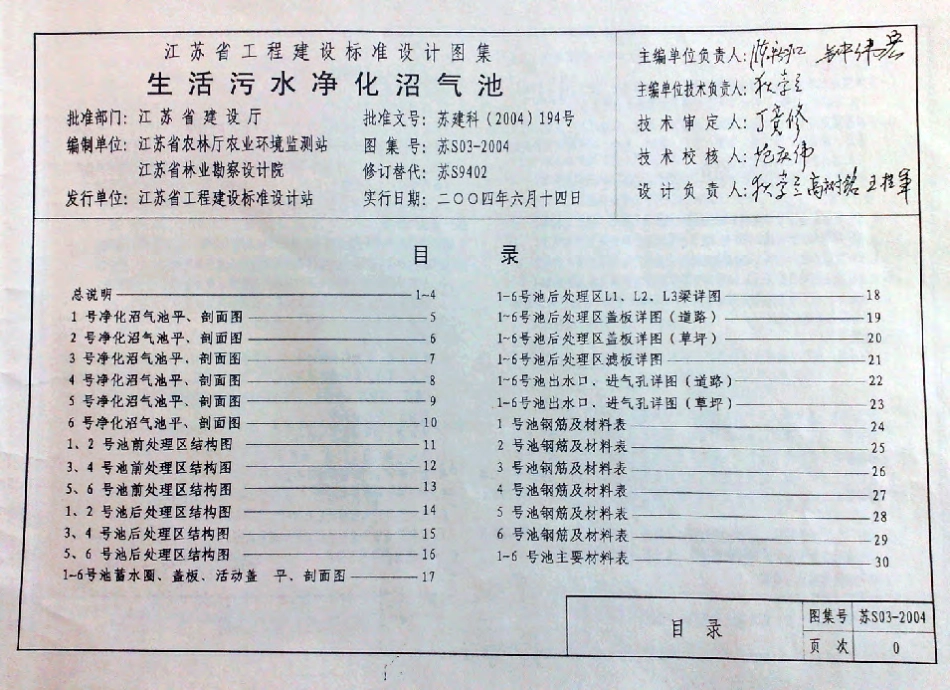 江苏省工程建设标准设计图集
生活污水净化沼气池
批准部门：江苏省建设厅
批准文号：苏建科（2004）194号
编制单位：江苏省农林厅农业环境监测站
图集号：苏S03-2004
江苏省林业勘察设计院
修订替代：苏S9402
发行单位：江苏省工程建设标准设计站
实行日期：二〇〇四年六月十四日
主编单位负责人：
主编单位技术负责人：
技术审定人：
技术校核人：
设计负责人：
目 录
总说明 1~4
1 号净化沼气池平、剖面图 5
2 号净化沼气池平、剖面图 6
3 号净化沼气池平、剖面图 7
4 号净化沼气池平、剖面图 8
5 号净化沼气池平、剖面图 9
6 号净化沼气池平、剖面图 10
1、2 号池前处理区结构图 11
3、4 号池前处理区结构图 12
5、6 号池前处理区结构图 13
1、2 号池后处理区结构图 14
3、4 号池后处理区结构图 15
5、6 号池后处理区结构图 16
1-6号池蓄水圈、盖板、活动盖 平、剖面图 17
1-6号池后处理区L1、L2、L3梁详图 18
1-6号池后处理区盖板详图（道路） 19
1-6号池后处理区盖板详图（草坪） 20
1-6号池后处理区滤板详图 21
1-6号池出水口、进气孔详图（道路） 22
1-6号池出水口、进气孔详图（草坪） 23
1 号池钢筋及材料表 24
2 号池钢筋及材料表 25
3 号池钢筋及材料表 26
4 号池钢筋及材料表 27
5 号池钢筋及材料表 28
6 号池钢筋及材料表 29
1-6 号池主要材料表 30
目 录
图集号 苏S03-2004
页 次 0